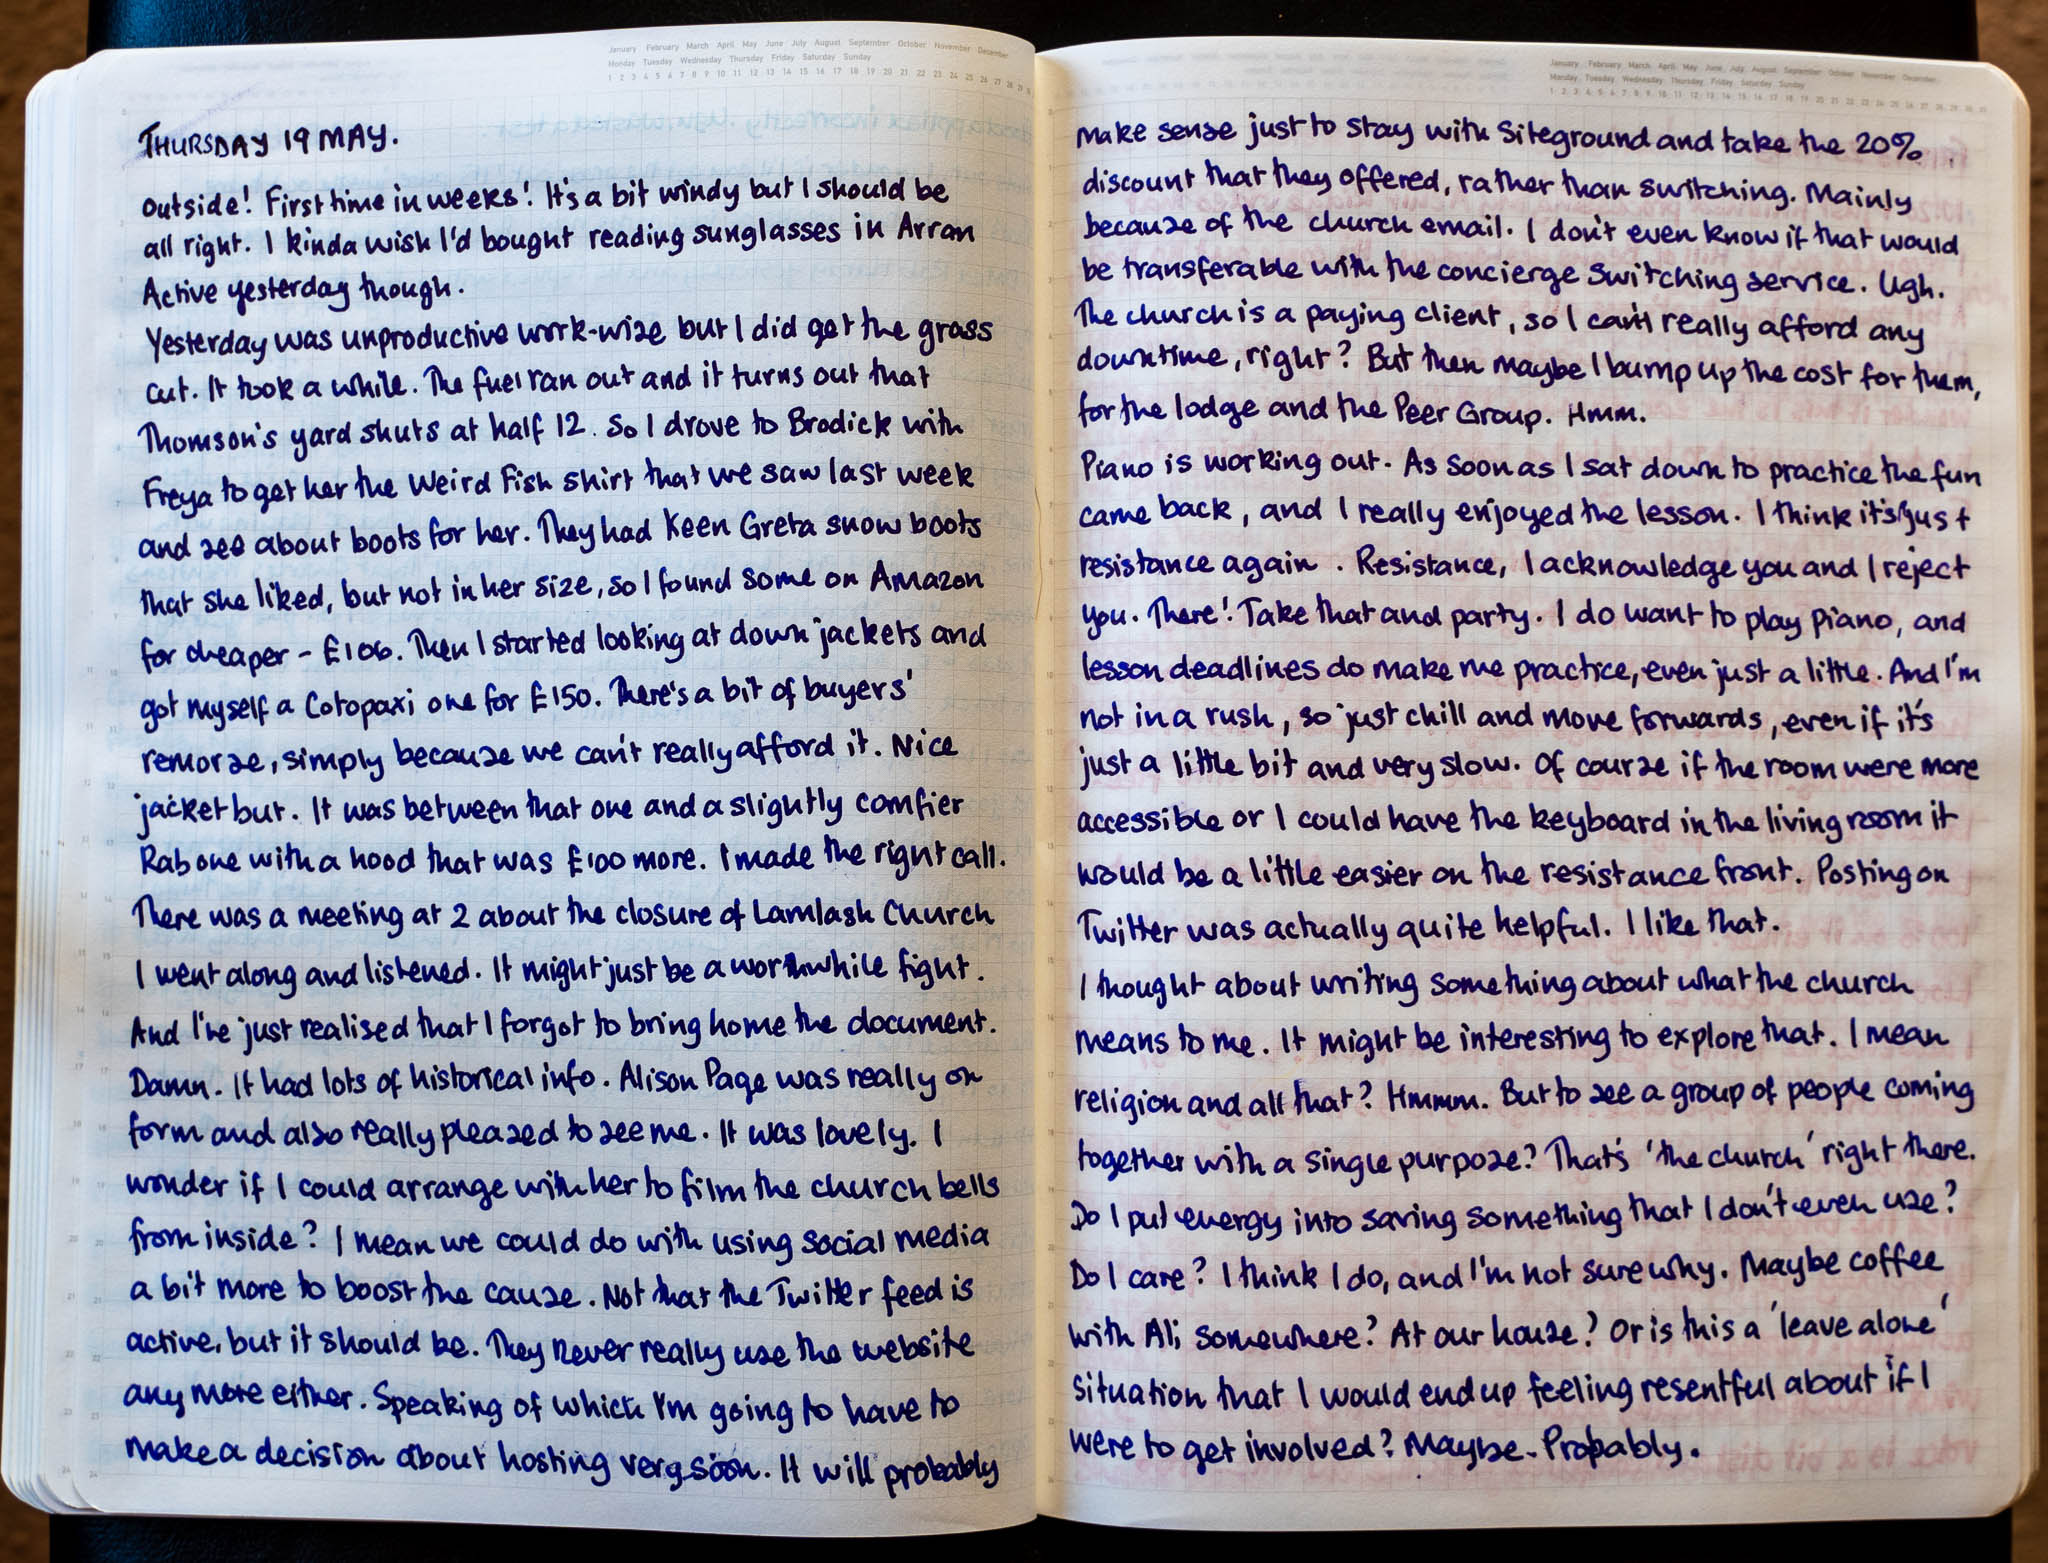 January February March April May June July August September October November December
Monday Tuesday Wednesday Thursday Friday Saturday Sunday
1 2 3 4 5 6 7 8 9 10 11 12 13 14 15 16 17 18 19 20 21 22 23 24 25 26 27 28 29
THURSDAY 19 MAY.
outside! First time in weeks! It's a bit windy but I should be
all right. I kinda wish I'd bought reading sunglasses in Arran
Active yesterday though.
Yesterday was unproductive work-wise but I did get the grass
cut. It took a while. The fuel ran out and it turns out that
Thomson's yard shuts at half 12. So I drove to Brodick with
Freya to get her the Weird Fish shirt that we saw last week
and see about boots for her. They had Keen Greta snow boots
that she liked, but not in her size, so I found some on Amazon
for cheaper - £106. Then I started looking at down jackets and
got myself a Cotopaxi one for £150. There's a bit of buyers'
remorse, simply because we can't really afford it. Nice
jacket but. It was between that one and a slightly comfier
Rab one with a hood that was £100 more. I made the right call.
There was a meeting at 2 about the closure of Lamlash Church
I went along and listened. It might just be a worthwhile fight.
And I've just realised that I forgot to bring home the document.
Damn. It had lots of historical info. Alison Page was really on
form and also really pleased to see me. It was lovely. I
wonder if I could arrange with her to film the church bells
from inside? I mean we could do with using social media
a bit more to boost the cause. Not that the Twitter feed is
active, but it should be. They never really use the website
any more either. Speaking of which I'm going to have to
make a decision about hosting very soon. It will probably
January February March April May June July August September October November December
Monday Tuesday Wednesday Thursday Friday Saturday Sunday
1 2 3 4 5 6 7 8 9 10 11 12 13 14 15 16 17 18 19 20 21 22 23 24 25 26 27 28 29 30 31
make sense just to stay with Siteground and take the 20%
discount that they offered, rather than switching. Mainly
because of the church email. I don't even know if that would
be transferable with the concierge switching service. Ugh.
The church is a paying client, so I can't really afford any
downtime, right? But then maybe I bump up the cost for them,
for the lodge and the Peer Group. Hmm.
Piano is working out. As soon as I sat down to practice the fun
came back, and I really enjoyed the lesson. I think it's just
resistance again. Resistance, I acknowledge you and I reject
you. There! Take that and party. I do want to play piano, and
lesson deadlines do make me practice, even just a little. And I'm
not in a rush, so just chill and move forwards, even if it's
just a little bit and very slow. Of course if the room were more
accessible or I could have the keyboard in the living room it
would be a little easier on the resistance front. Posting on
Twitter was actually quite helpful. I like that.
I thought about writing something about what the church
means to me. It might be interesting to explore that. I mean
religion and all that? Hmmm. But to see a group of people coming
together with a single purpose? That's 'the church' right there.
Do I put energy into saving something that I don't even use?
Do I care? I think I do, and I'm not sure why. Maybe coffee
with Ali somewhere? At our house? Or is this a 'leave alone'
situation that I would end up feeling resentful about if I
were to get involved? Maybe. Probably.